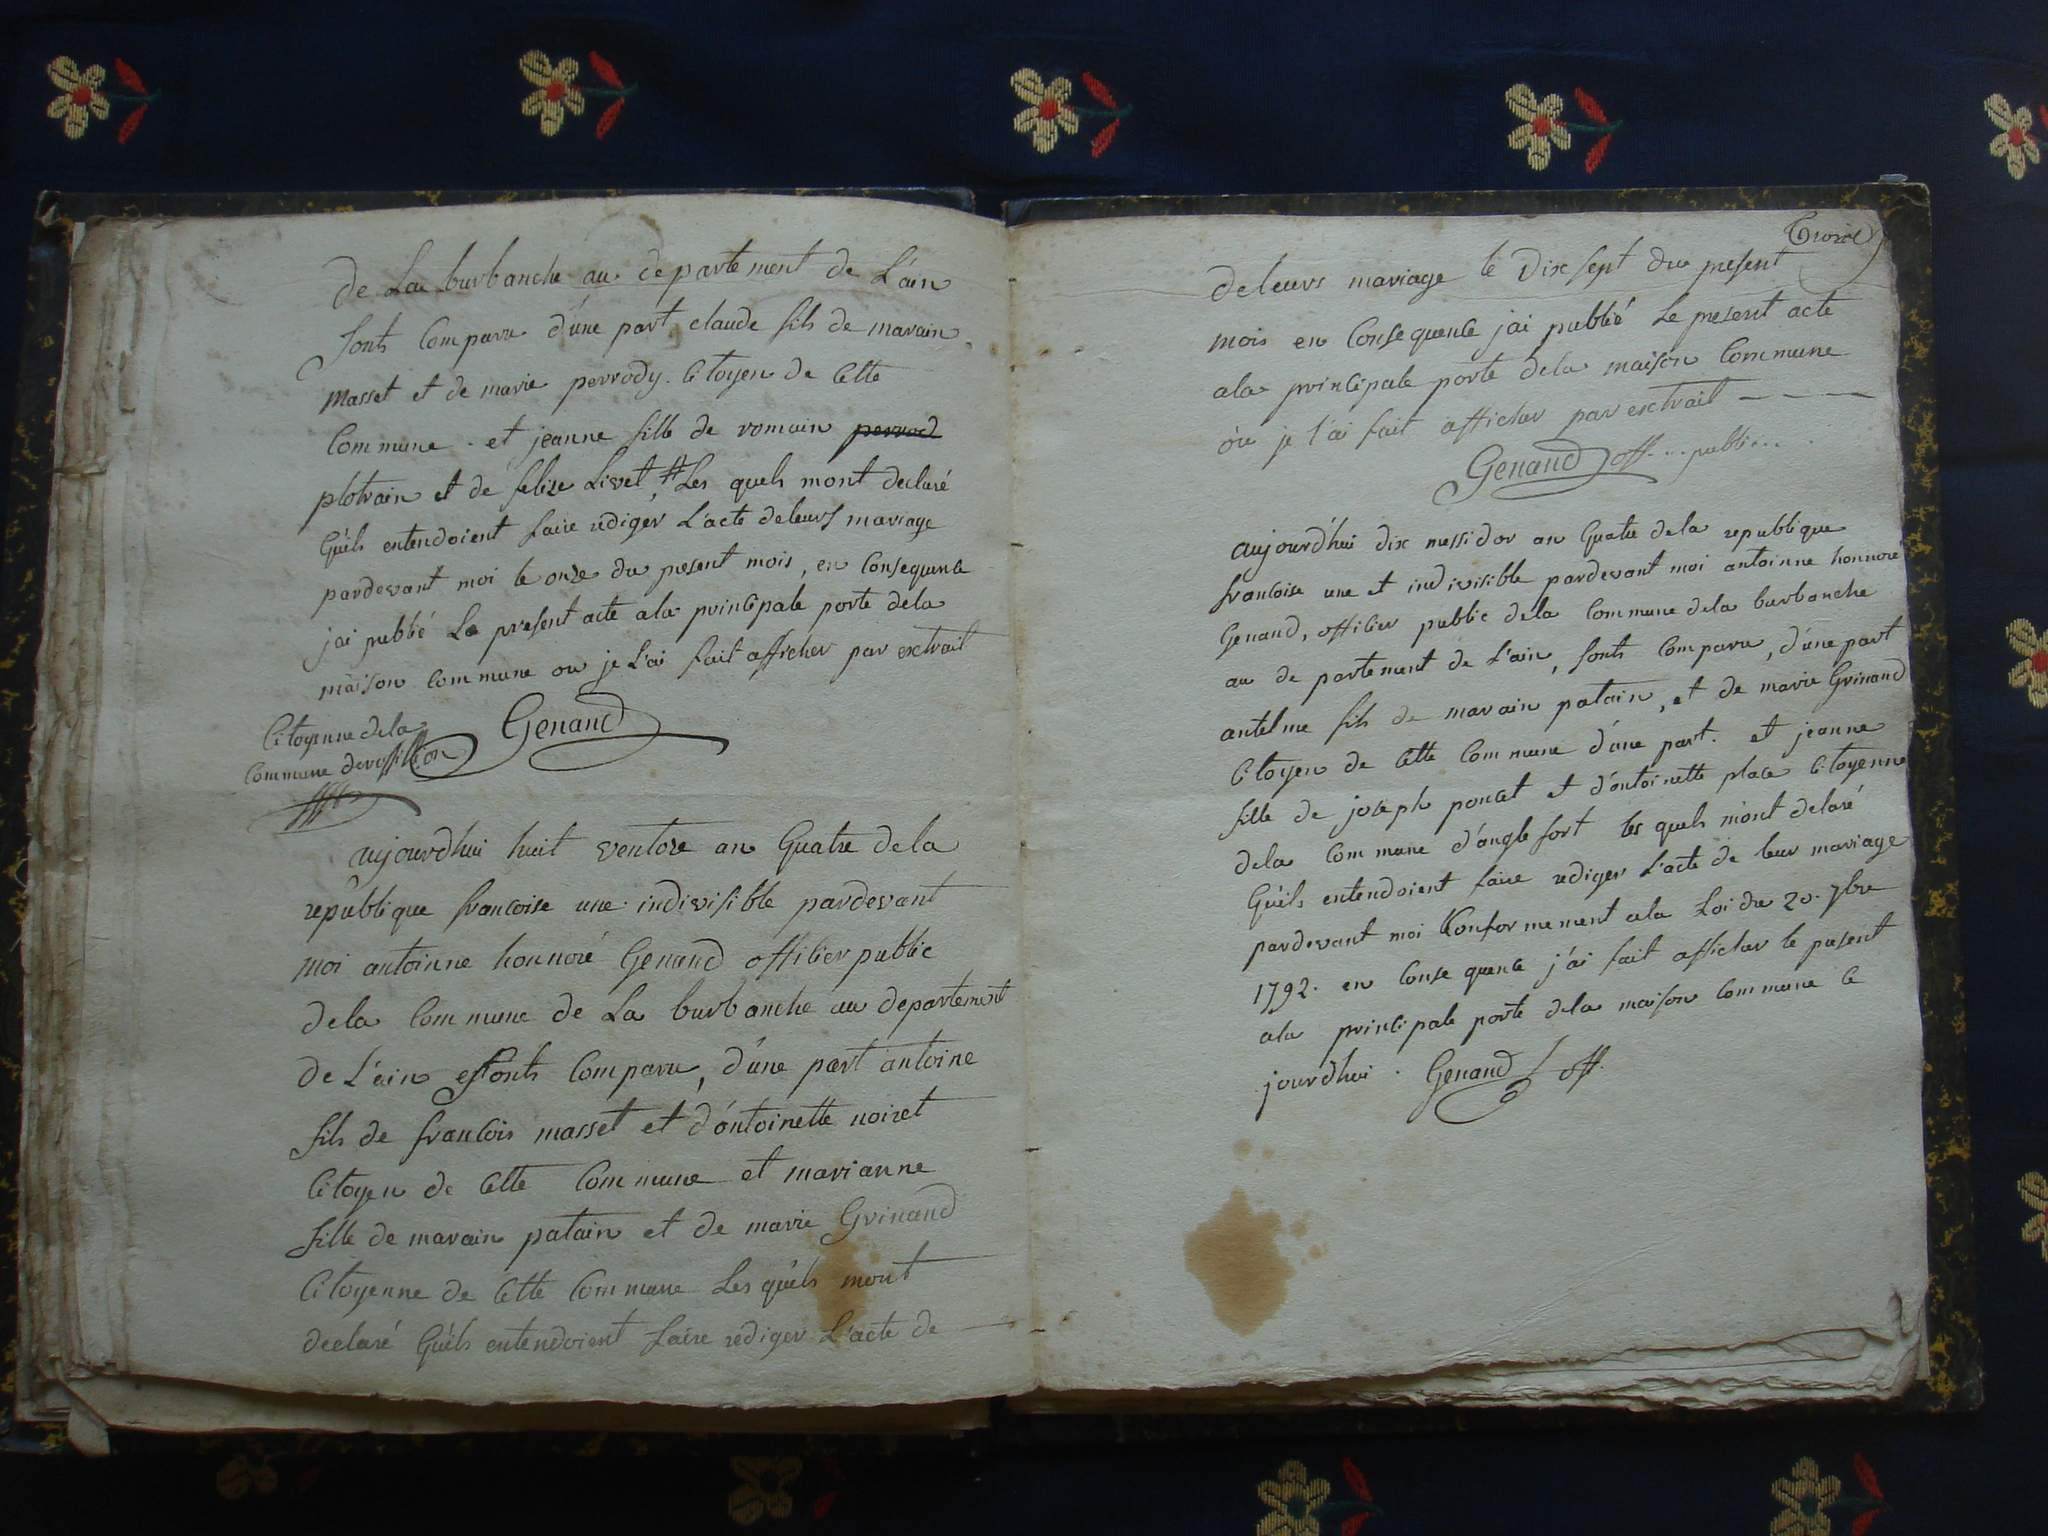 de La burbanche au departement de L'ain
sonts Comparu d'une part claude fils de marain
masset et de marie perrody. Citoyen de Cette
Commune. et jeanne fille de romain perrod
plotrain et de felize Livet, # Les quels mont declaré
Quéls entendoient faire rediger L'acte deleurs mariage
pardevant moi le onze du present mois, en Consequence
jai publié Le present acte ala principale porte dela
maison Commune ou je L'ai fait afficher par esctrait
Citoyenne dela
Commune derossillon
Genand
aujourdhui huit ventose an Quatre dela
republique francoise une indivisible pardevant
moi antoinne honnoré Genand officier public
dela Commune de La burbanche au departement
de L'ain sonts Comparu, d'une part antoine
fils de francois masset et d'ontoinette noizet
Citoyen de Cette Commune et marianne
fille de marain patain et de marie Grinand
Citoyenne de Cette Commune Les quéls mont
declaré Quéls entendoient faire rediger L'acte de
Troize
deleurs mariage le Dixsept du present
mois en Consequence jai publié Le present acte
ala principale porte dela maison Commune
òu je l'ai fait afficher par esctrait
Genand off... public...
aujourd'hui dix messidor an Quatre dela republique
francoise une et indivisible pardevant moi antoinne honnoré
Genand, officier public dela Commune dela burbanche
au departement de L'ain, sonts Comparu, d'une part
antelme fils de marain patain, et de marie Grinand
Citoyen de Cette Commune d'une part. et jeanne
fille de joseph poncet et d'ontoinette place Citoyenne
dela Commune d'anglefort les quels m'ont delaré
Quéils entendoient faire rediger L'acte de leur mariage
pardevant moi Conformement ala Loi du 20. 7bre
1792. en Conse quence j'ai fait afficher le present
ala principale porte dela maison Commune Ce
jourdhui. Genand off.